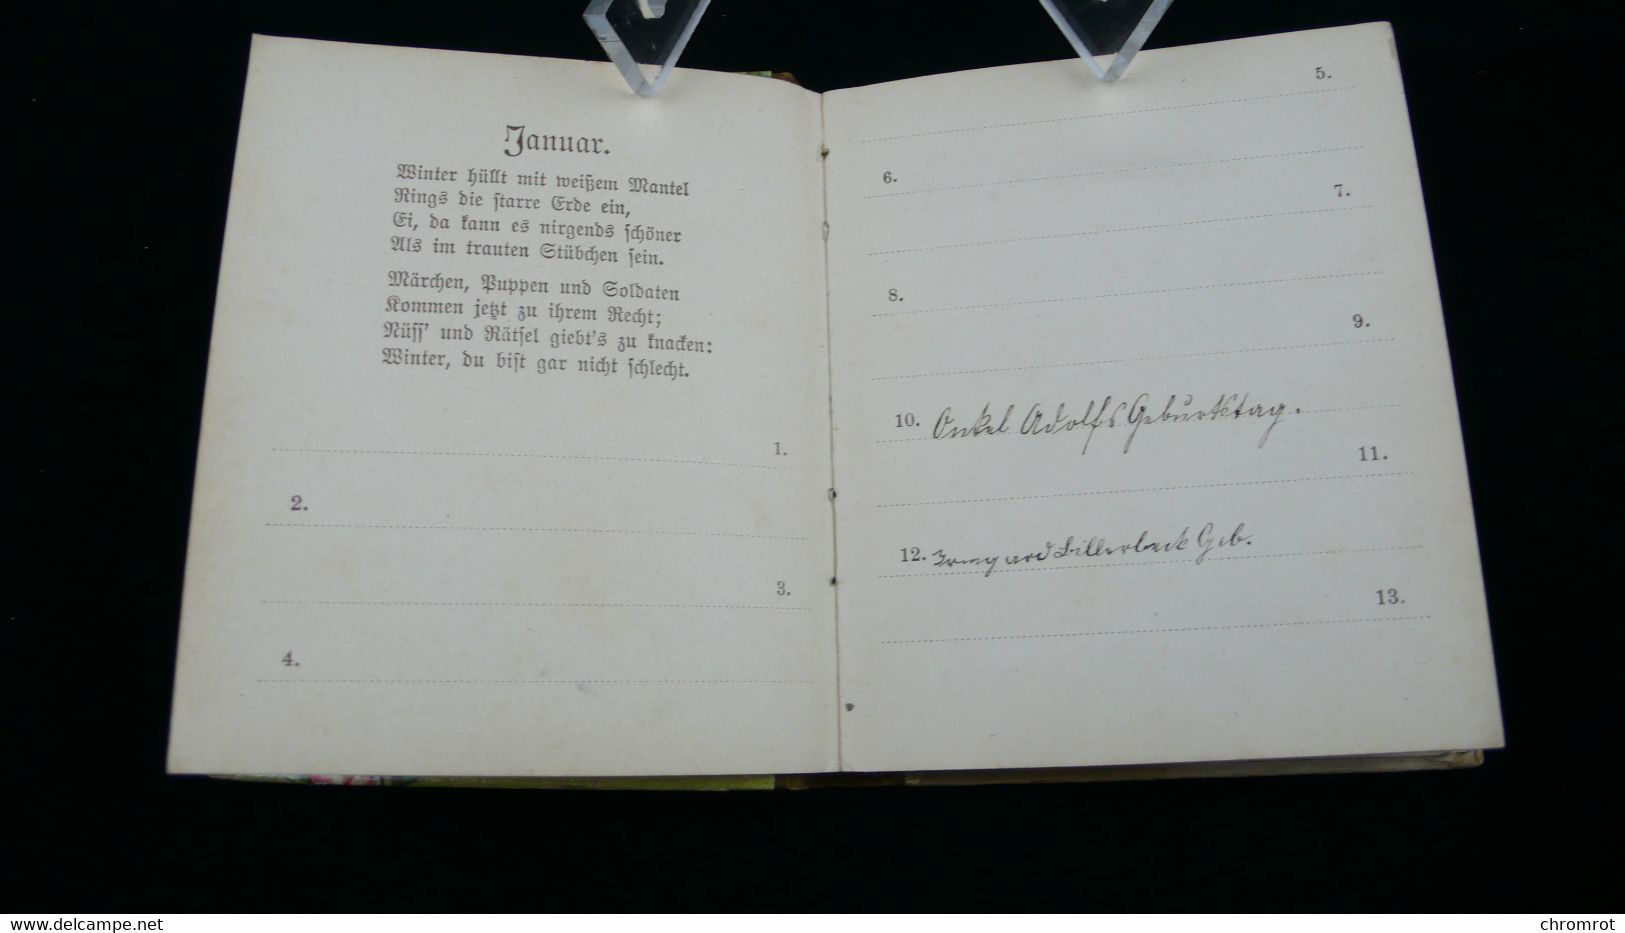 Januar.
Winter hüllt mit weißem Mantel
Rings die starre Erde ein,
Ei, da kann es nirgends schöner
Als im trauten Stübchen sein.
Märchen, Puppen und Soldaten
Kommen jetzt zu ihrem Recht;
Nüss' und Rätsel giebt's zu knacken:
Winter, du bist gar nicht schlecht.
1.
2.
3.
4.
5.
6.
7.
8.
9.
10. Onkel Adolfs Geburtstag.
11.
12. Irmgard Billerbeck Geb.
13.
https://www.delcampe.net
chromrot